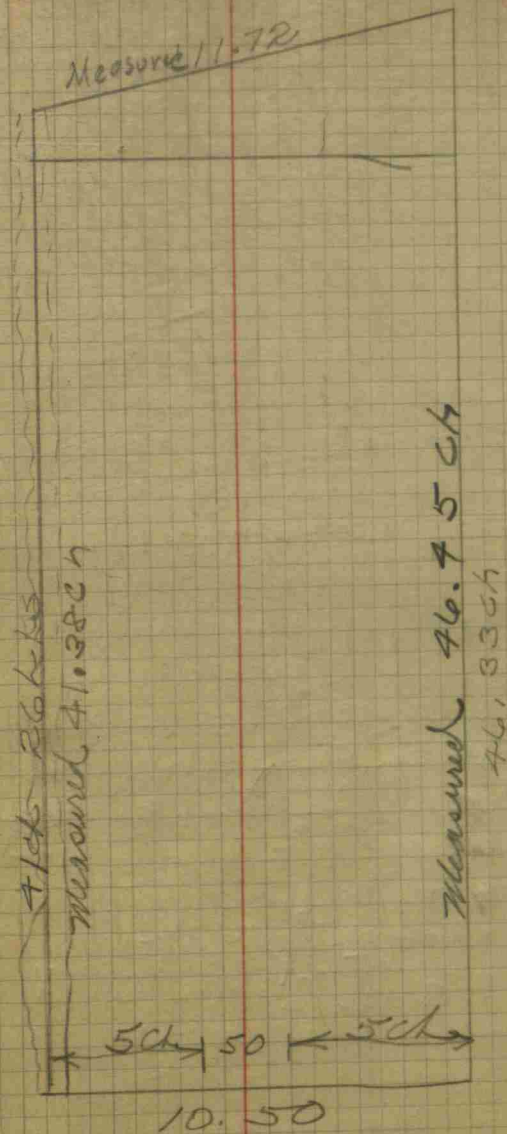 Measured 11.72
41 ch 26 links
Measured 41.38 ch
Measured 46.45 ch
46.33 ch
5 ch 50 5 ch
10.50